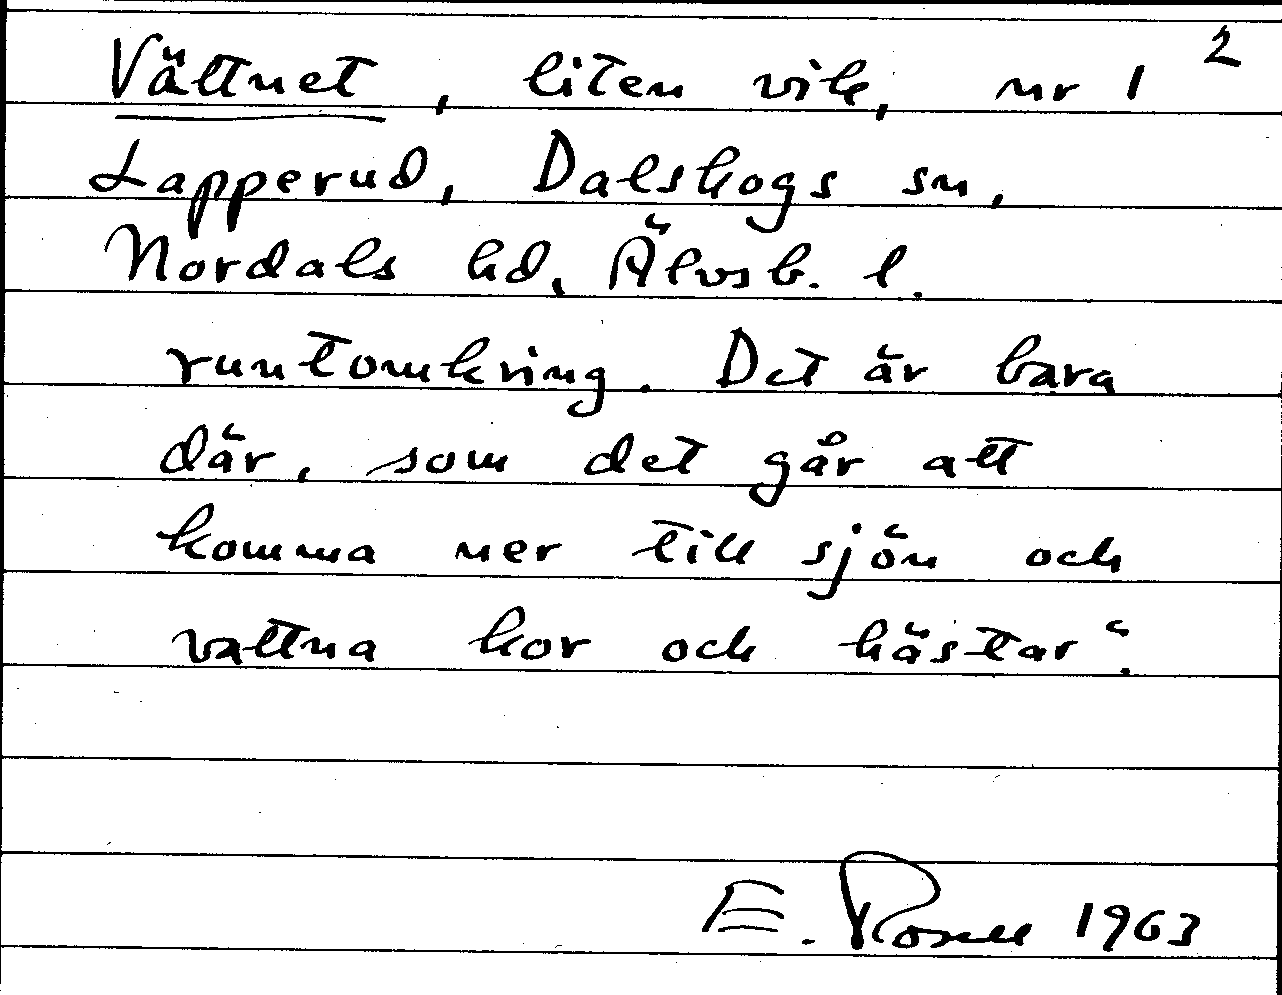 2
Vättnet, liten vik, nr 1
Lapperud, Dalskogs sn,
Nordals hd, Älvsb. l.
runtomkring. Det är bara
där, som det går att
komma ner till sjön och
vattna kor och hästar".
E. 1963